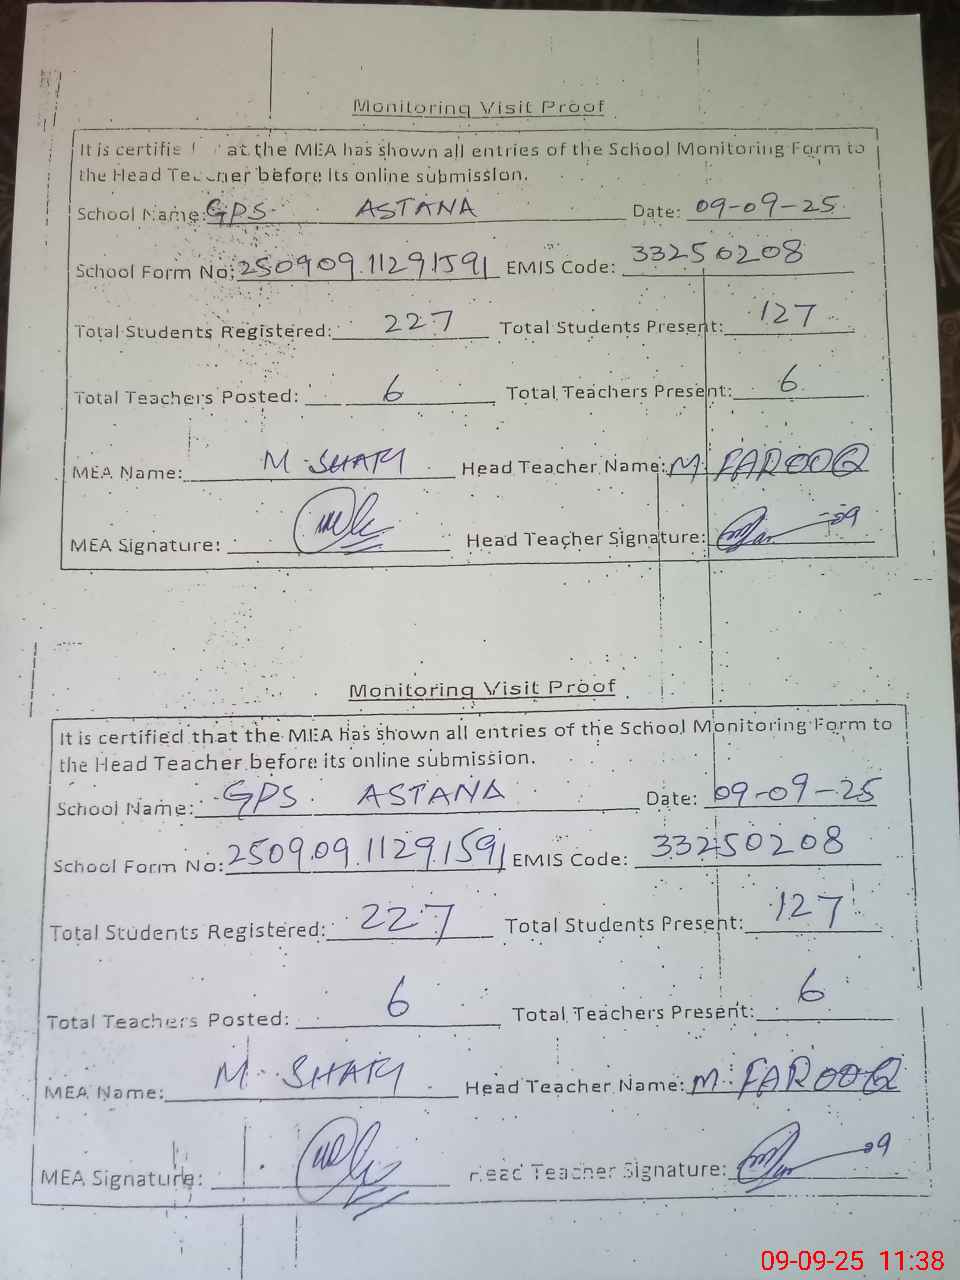 Monitoring Visit Proof
It is certified that the MEA has shown all entries of the School Monitoring Form to
the Head Teacher before its online submission.
School Name: GPS ASTANA Date: 09-09-25
School Form No: 250909.11291591 EMIS Code: 33250208
Total Students Registered: 227 Total Students Present: 127
Total Teachers Posted: 6 Total Teachers Present: 6
MEA Name: M. Head Teacher Name: M. FAROOQ
MEA Signature: Head Teacher Signature:
Monitoring Visit Proof
It is certified that the MEA has shown all entries of the School Monitoring Form to
the Head Teacher before its online submission.
School Name: GPS ASTANA Date: 09-09-25
School Form No: 250909.11291591 EMIS Code: 33250208
Total Students Registered: 227 Total Students Present: 127
Total Teachers Posted: 6 Total Teachers Present: 6
MEA Name: M. Head Teacher Name: M. FAROOQ
MEA Signature: Head Teacher Signature:
09-09-25 11:38